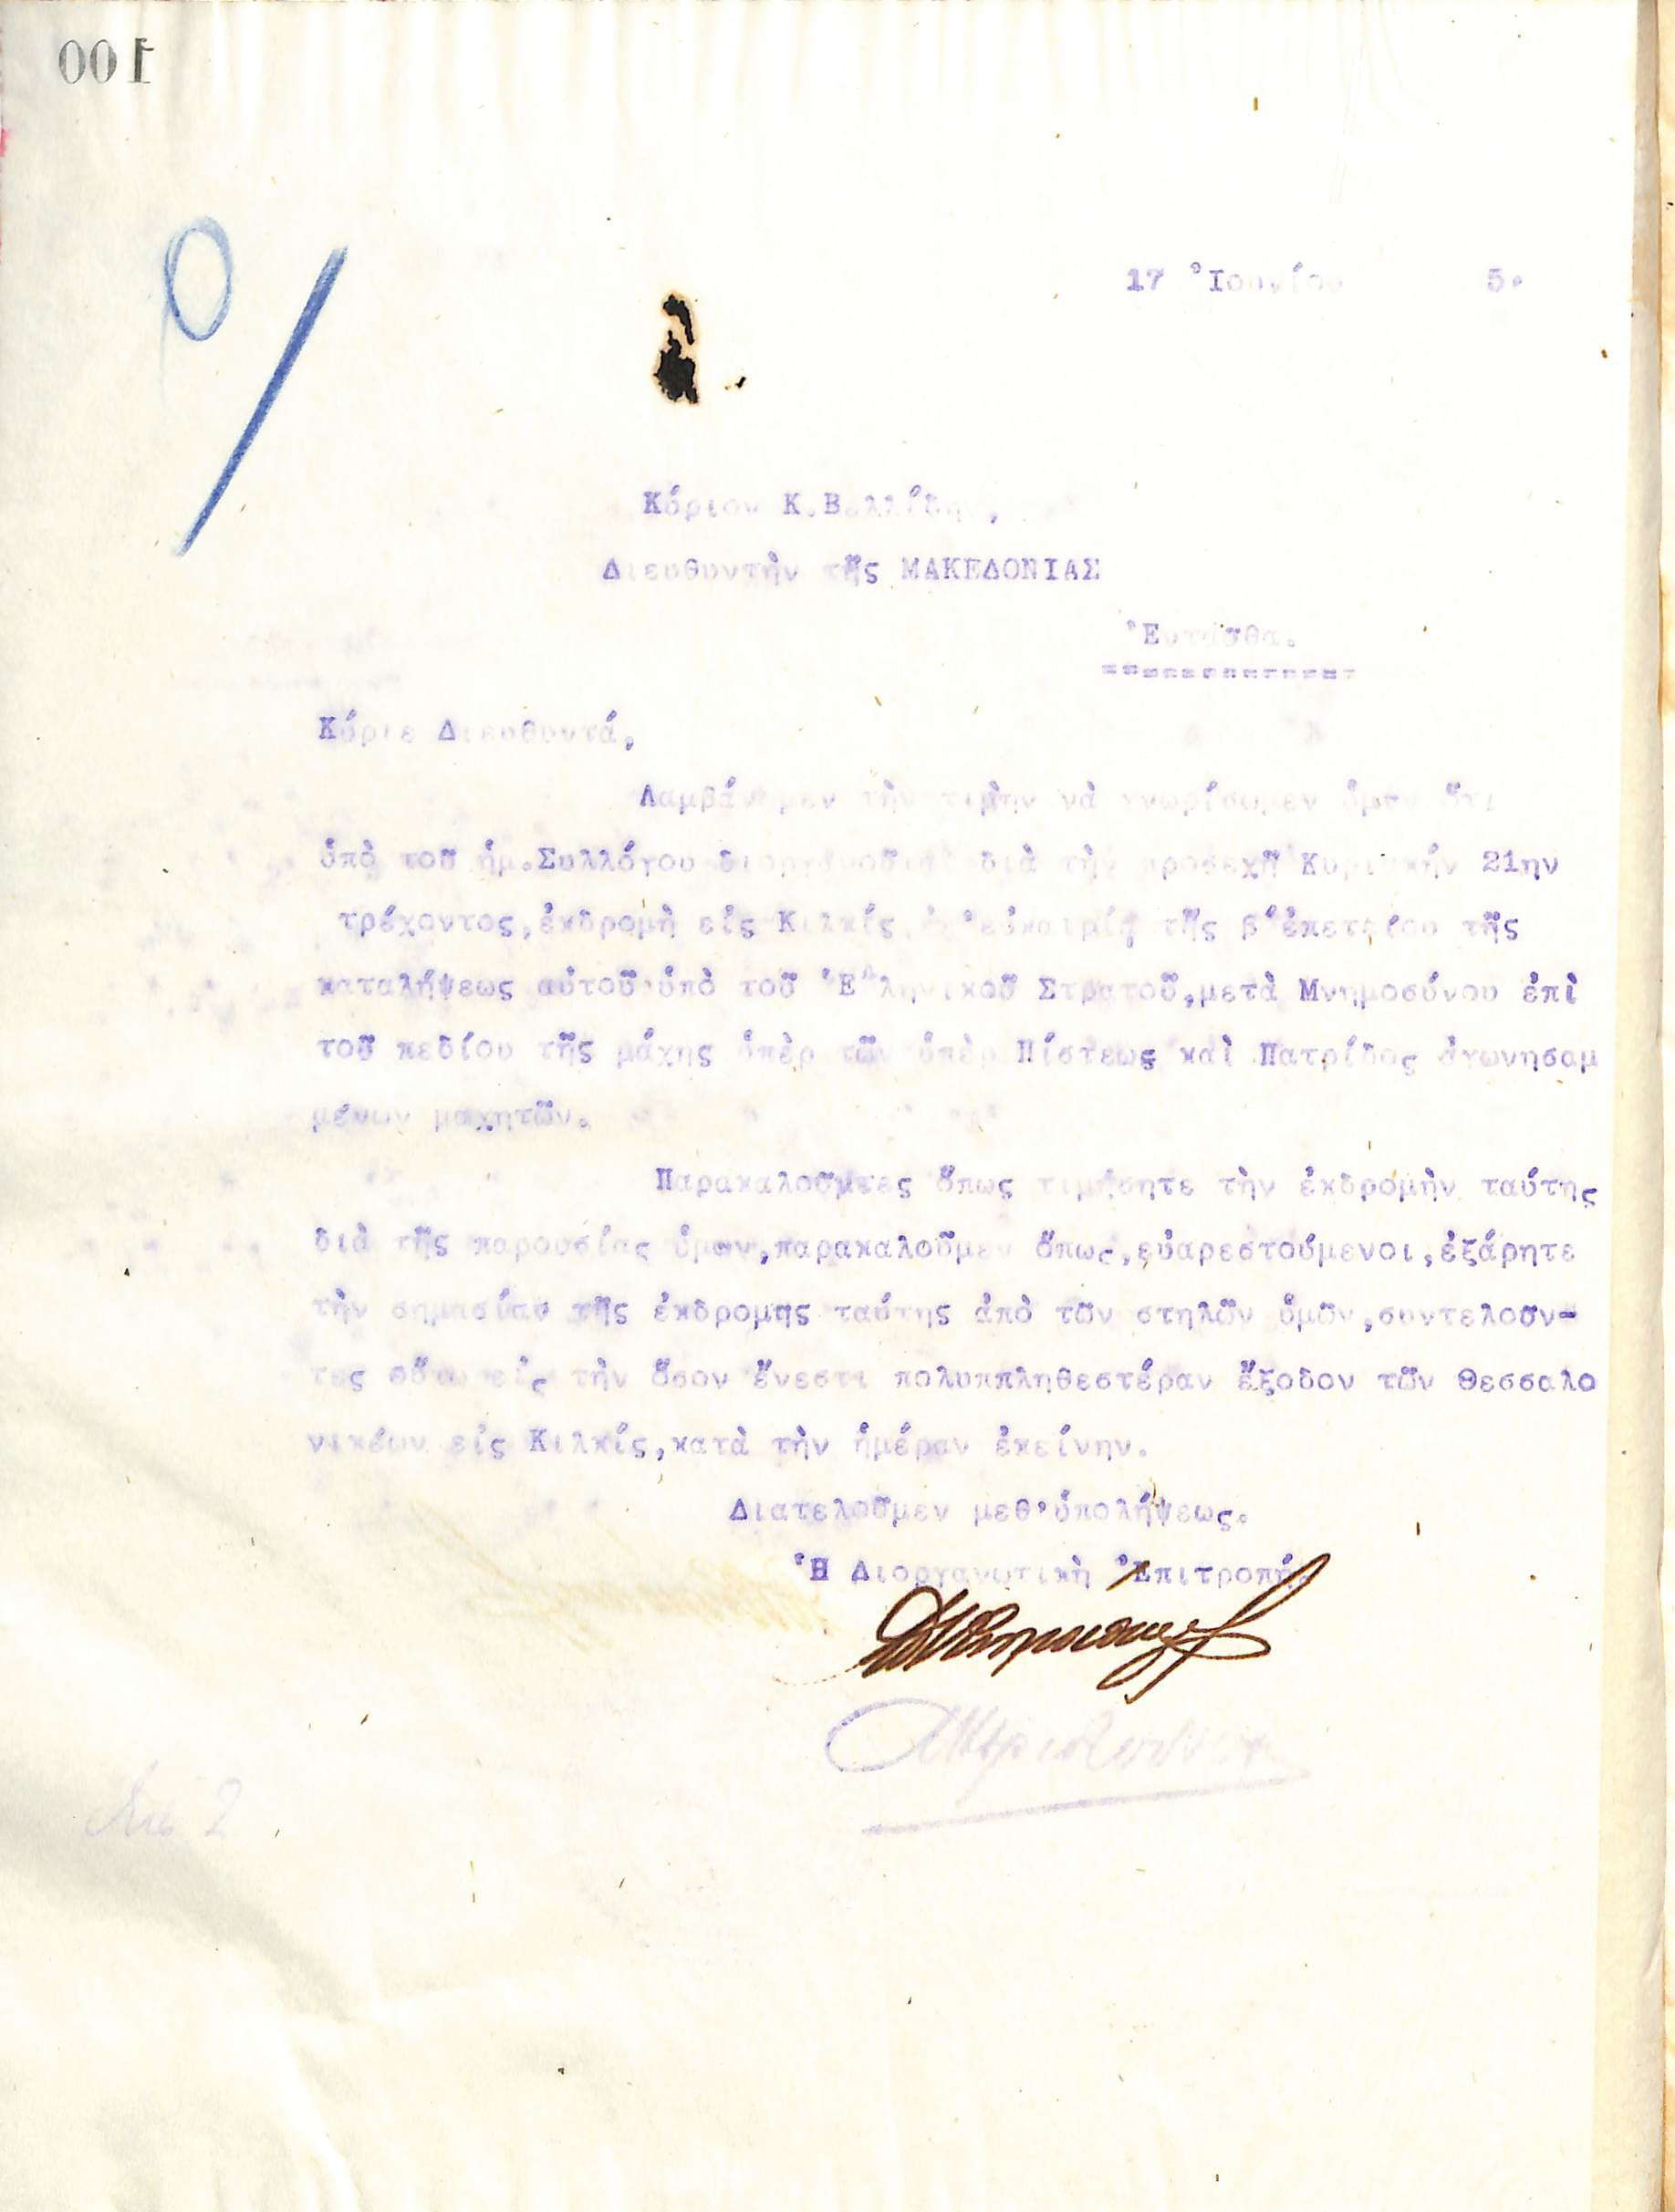 100
17 Ἰουνίου 5.
Κύριον Κ.Βελλίδην,
Διευθυντὴν τῆς ΜΑΚΕΔΟΝΙΑΣ
Ἐνταῦθα.
Κύριε Διευθυντά,
Λαμβάνομεν τὴν τιμὴν νὰ γνωρίσωμεν ὑμῖν ὅτι
ὑπὸ τοῦ ἡμ.Συλλόγου διοργανοῦται διὰ τὴν προσεχῆ Κυριακήν 21ην
τρέχοντος,ἐκδρομὴ εἰς Κιλκίς, ἐπ'εὐκαιρίᾳ τῆς β'ἐπετείου τῆς
καταλήψεως αὐτοῦ ὑπὸ τοῦ Ἑλληνικοῦ Στρατοῦ,μετὰ Μνημοσύνου ἐπὶ
τοῦ πεδίου τῆς μάχης ὑπὲρ τῶν ὑπὲρ Πίστεως καὶ Πατρίδος ἀγωνησαμ
μένων μαχητῶν.
Παρακαλοῦντες ὅπως τιμήσητε τὴν ἐκδρομὴν ταύτης
διὰ τῆς παρουσίας ὑμῶν,παρακαλοῦμεν ὅπως,εὐαρεστούμενοι,ἐξάρητε
τὴν σημασίαν τῆς ἐκδρομῆς ταύτης ἀπὸ τῶν στηλῶν ὑμῶν,συντελοῦν-
τες οὕτω εἰς τὴν ὅσον ἔνεστι πολυππληθεστέραν ἔξοδον τῶν Θεσσαλο
νικέων εἰς Κιλκίς,κατὰ τὴν ἡμέραν ἐκείνην.
Διατελοῦμεν μεθ'ὑπολήψεως.
Ἡ Διοργανωτικὴ Ἐπιτροπή.